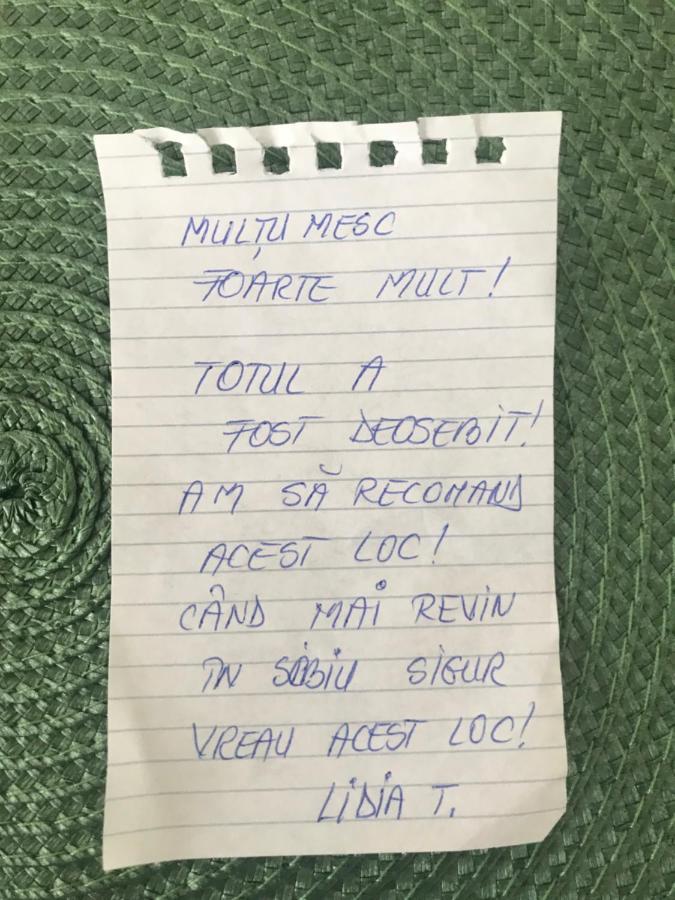 MULȚUMESC
FOARTE MULT!
TOTUL A
FOST DEOSEBIT!
AM SĂ RECOMAND
ACEST LOC!
CÂND MAI REVIN
ÎN SIBIU SIGUR
VREAU ACEST LOC!
LIDIA T.